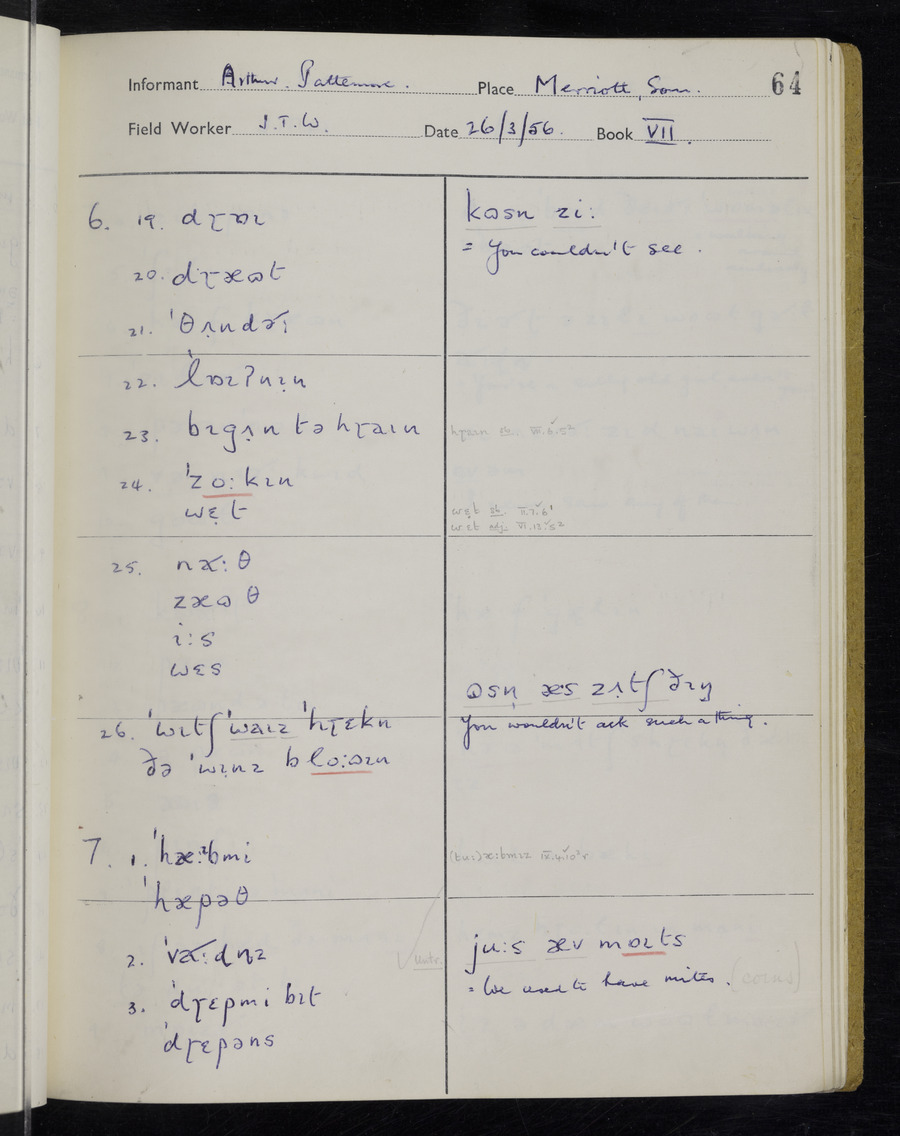 Informant Arthur. Pattemore. Place Merriott, Som. 64
Field Worker J.T.W. Date 26/3/56. Book VII.
6. 19. dɽɒɪ
20. dɽæɷt
21. ˈθʌ̣ndəɽ
22. ˈlɒɪʔnɪn
23. bɪgʌ̣n tə hɽaɪn
24. ˈzo:kɪn
wɛ̣t
25. næ:θ
zæɷθ
i:s
wɛs
26. ˈwɪtʃ ˈwaɪz ˈhɽɛkn
ðə ˈwɪnz blo:ɷɪn
7. 1. ˈhæ:bmi
ˈhæpəθ
2. ˈvæ:dnz
3. ˈdɽɛpmi bɪt
ˈdɽɛpəns
kɷsn zi:
= You couldn't see.
hɽaɪn
wɛ̣t sb. II.7.6
wɛt adj. VI.13.5²
ɷsn æs zʌ̣tʃ ðɪŋ
You wouldn't ask such a thing.
æ:bmɪz
untr.
ju:s æv mɒɪts
= We used to have mites. (coins)